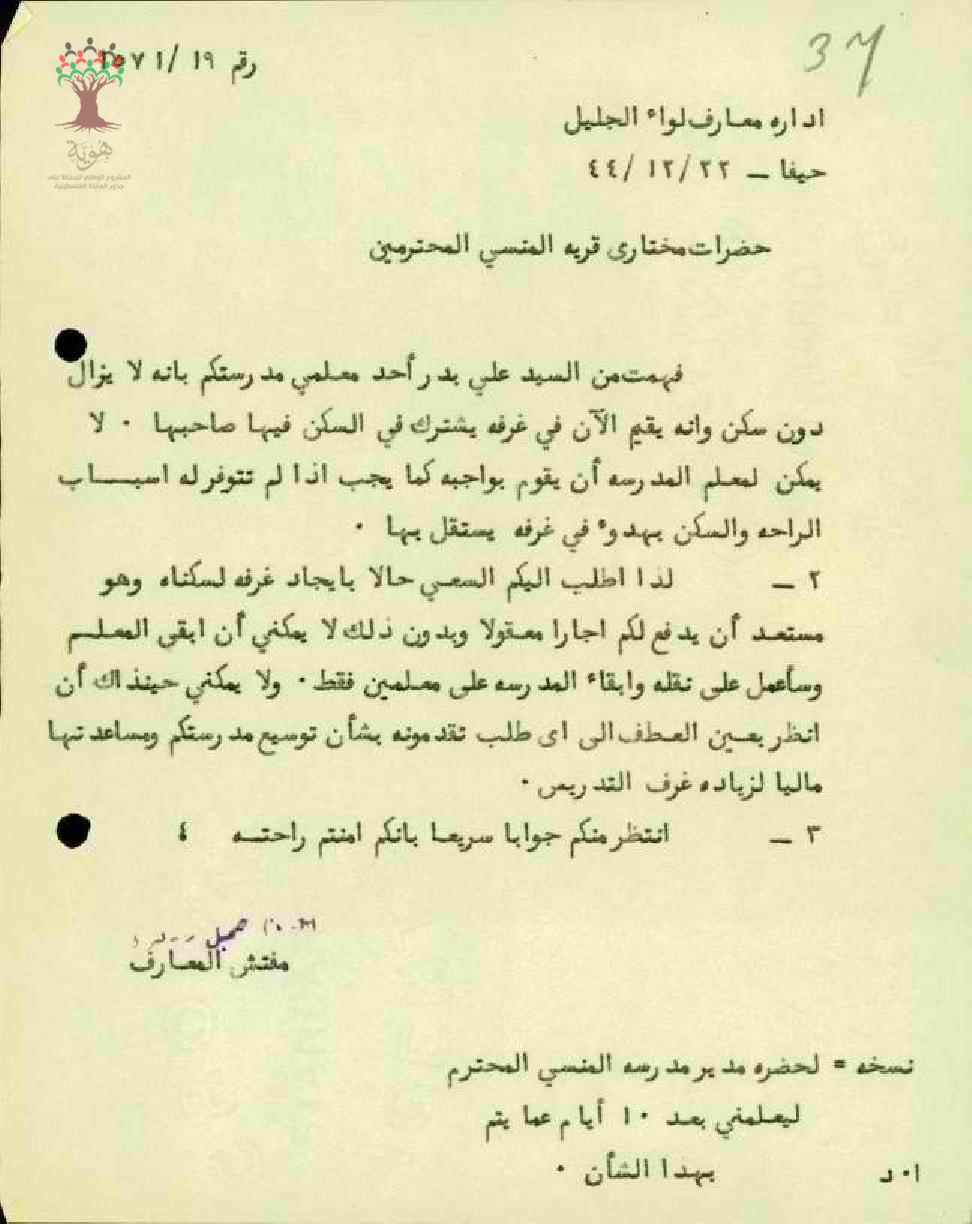 37
رقم ١٩ /١٥٧١
هوية
المشروع الوطني للحفاظ على
جذور العائلة الفلسطينية
اداره معارف لواء الجليل
حيفا ــ ٢٢ /١٢/ ٤٤
حضرات مختارى قريه المنسي المحترمين
فهمت من السيد علي بدر أحد معلمي مدرستكم بانه لا يزال
دون سكن وانه يقيم الآن في غرفه يشترك في السكن فيها صاحبها ٠ لا
يمكن لمعلم المدرسه أن يقوم بواجبه كما يجب اذا لم تتوفر له اسبـــاب
الراحه والسكن بهدوء في غرفه يستقل بها ٠
٢ ــ لذا اطلب اليكم السعي حالا بايجاد غرفه لسكناه وهو
مستعد أن يدفع لكم اجارا معقولا وبدون ذلك لا يمكنني أن ابقى المعلـم
وسأعمل على نقله وابقاء المدرسه على معلمين فقط ٠ ولا يمكنني حينذاك أن
انظر بعين العطف الى اى طلب تقدمونه بشأن توسيع مدرستكم ومساعدتها
ماليا لزياده غرف التدريس ٠
٣ ــ انتظر منكم جوابا سريعا بانكم امنتم راحتـه ٤
مفتش المعارف
نسخه = لحضره مدير مدرسه المنسي المحترم
ليعلمني بعد ١٠ أيام عما يتم
بهذا الشأن ٠
ا٠د